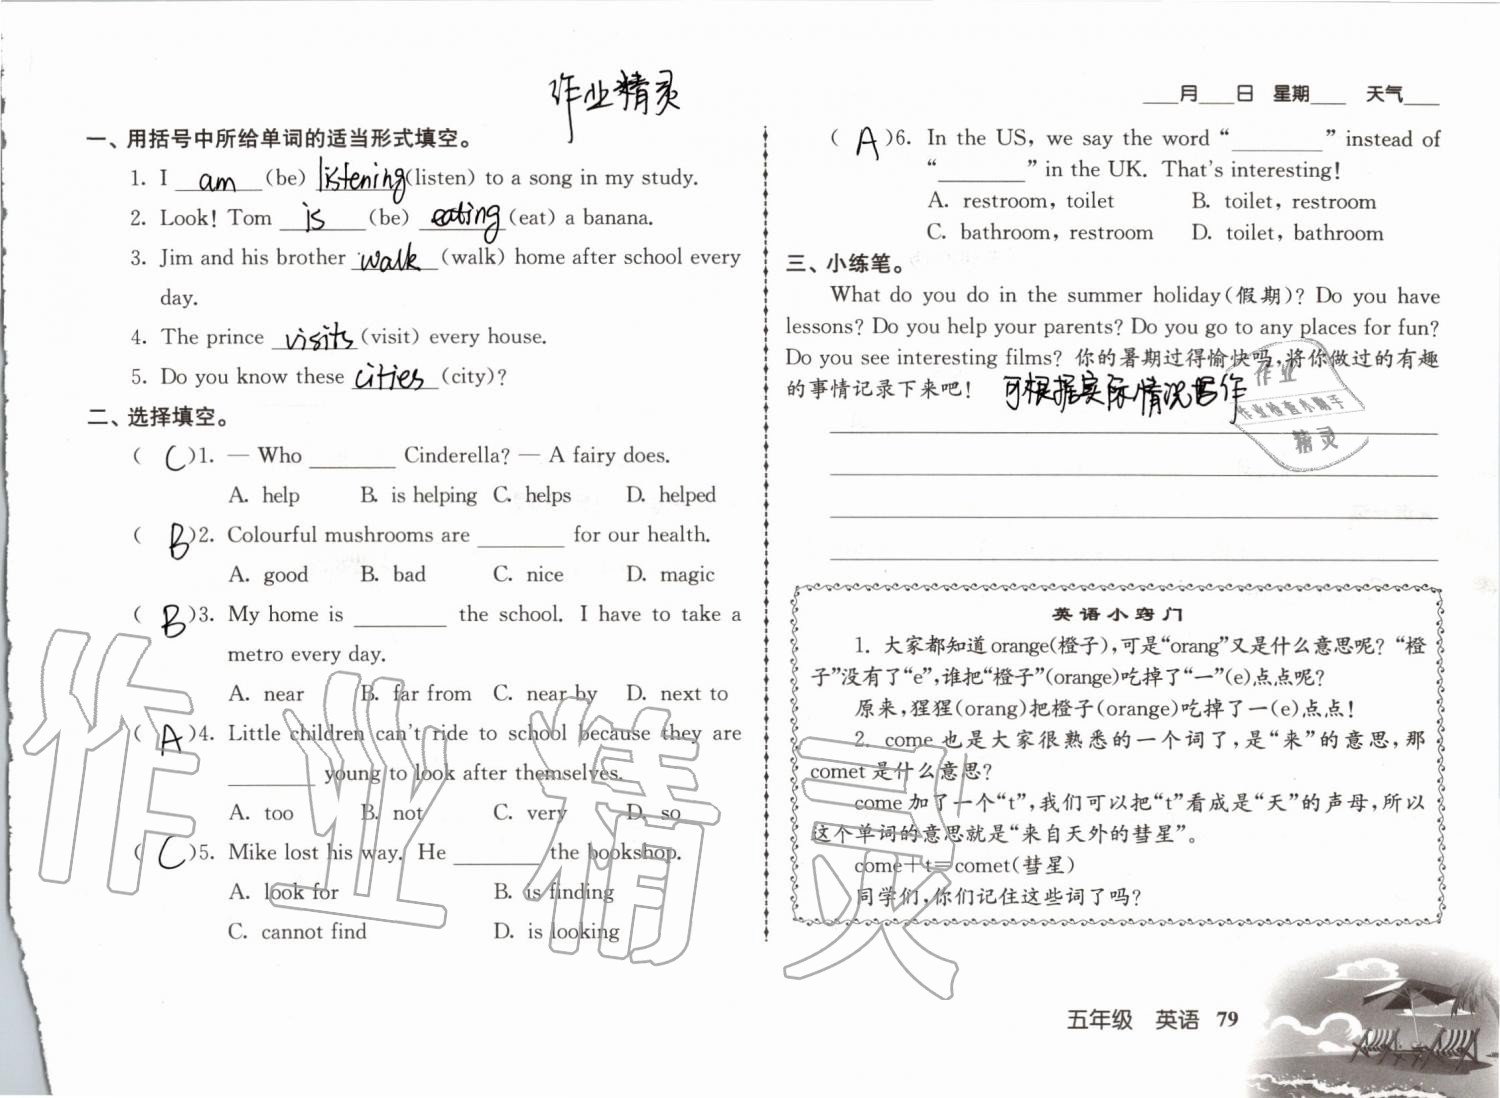 作业精灵
___月___日 星期___ 天气___
一、用括号中所给单词的适当形式填空。
1. I am (be) listening (listen) to a song in my study.
2. Look! Tom is (be) eating (eat) a banana.
3. Jim and his brother walk (walk) home after school every
day.
4. The prince visits (visit) every house.
5. Do you know these cities (city)?
二、选择填空。
( C )1. — Who ________ Cinderella? — A fairy does.
A. help B. is helping C. helps D. helped
( B )2. Colourful mushrooms are ________ for our health.
A. good B. bad C. nice D. magic
( B )3. My home is ________ the school. I have to take a
metro every day.
A. near B. far from C. near by D. next to
( A )4. Little children can't ride to school because they are
________ young to look after themselves.
A. too B. not C. very D. so
( C )5. Mike lost his way. He ________ the bookshop.
A. look for B. is finding
C. cannot find D. is looking
( A )6. In the US, we say the word “________” instead of
“________” in the UK. That's interesting!
A. restroom, toilet B. toilet, restroom
C. bathroom, restroom D. toilet, bathroom
三、小练笔。
What do you do in the summer holiday(假期)? Do you have
lessons? Do you help your parents? Do you go to any places for fun?
Do you see interesting films? 你的暑期过得愉快吗,将你做过的有趣
的事情记录下来吧! 可根据实际情况写作
作业
作业检查小助手
精灵
英语小窍门
1. 大家都知道orange(橙子),可是“orang”又是什么意思呢? “橙
子”没有了“e”,谁把“橙子”(orange)吃掉了“一”(e)点点呢?
原来,猩猩(orang)把橙子(orange)吃掉了一(e)点点!
2. come 也是大家很熟悉的一个词了,是“来”的意思,那
comet 是什么意思?
come 加了一个“t”,我们可以把“t”看成是“天”的声母,所以
这个单词的意思就是“来自天外的彗星”。
come+t=comet(彗星)
同学们,你们记住这些词了吗?
作业精灵
五年级 英语 79